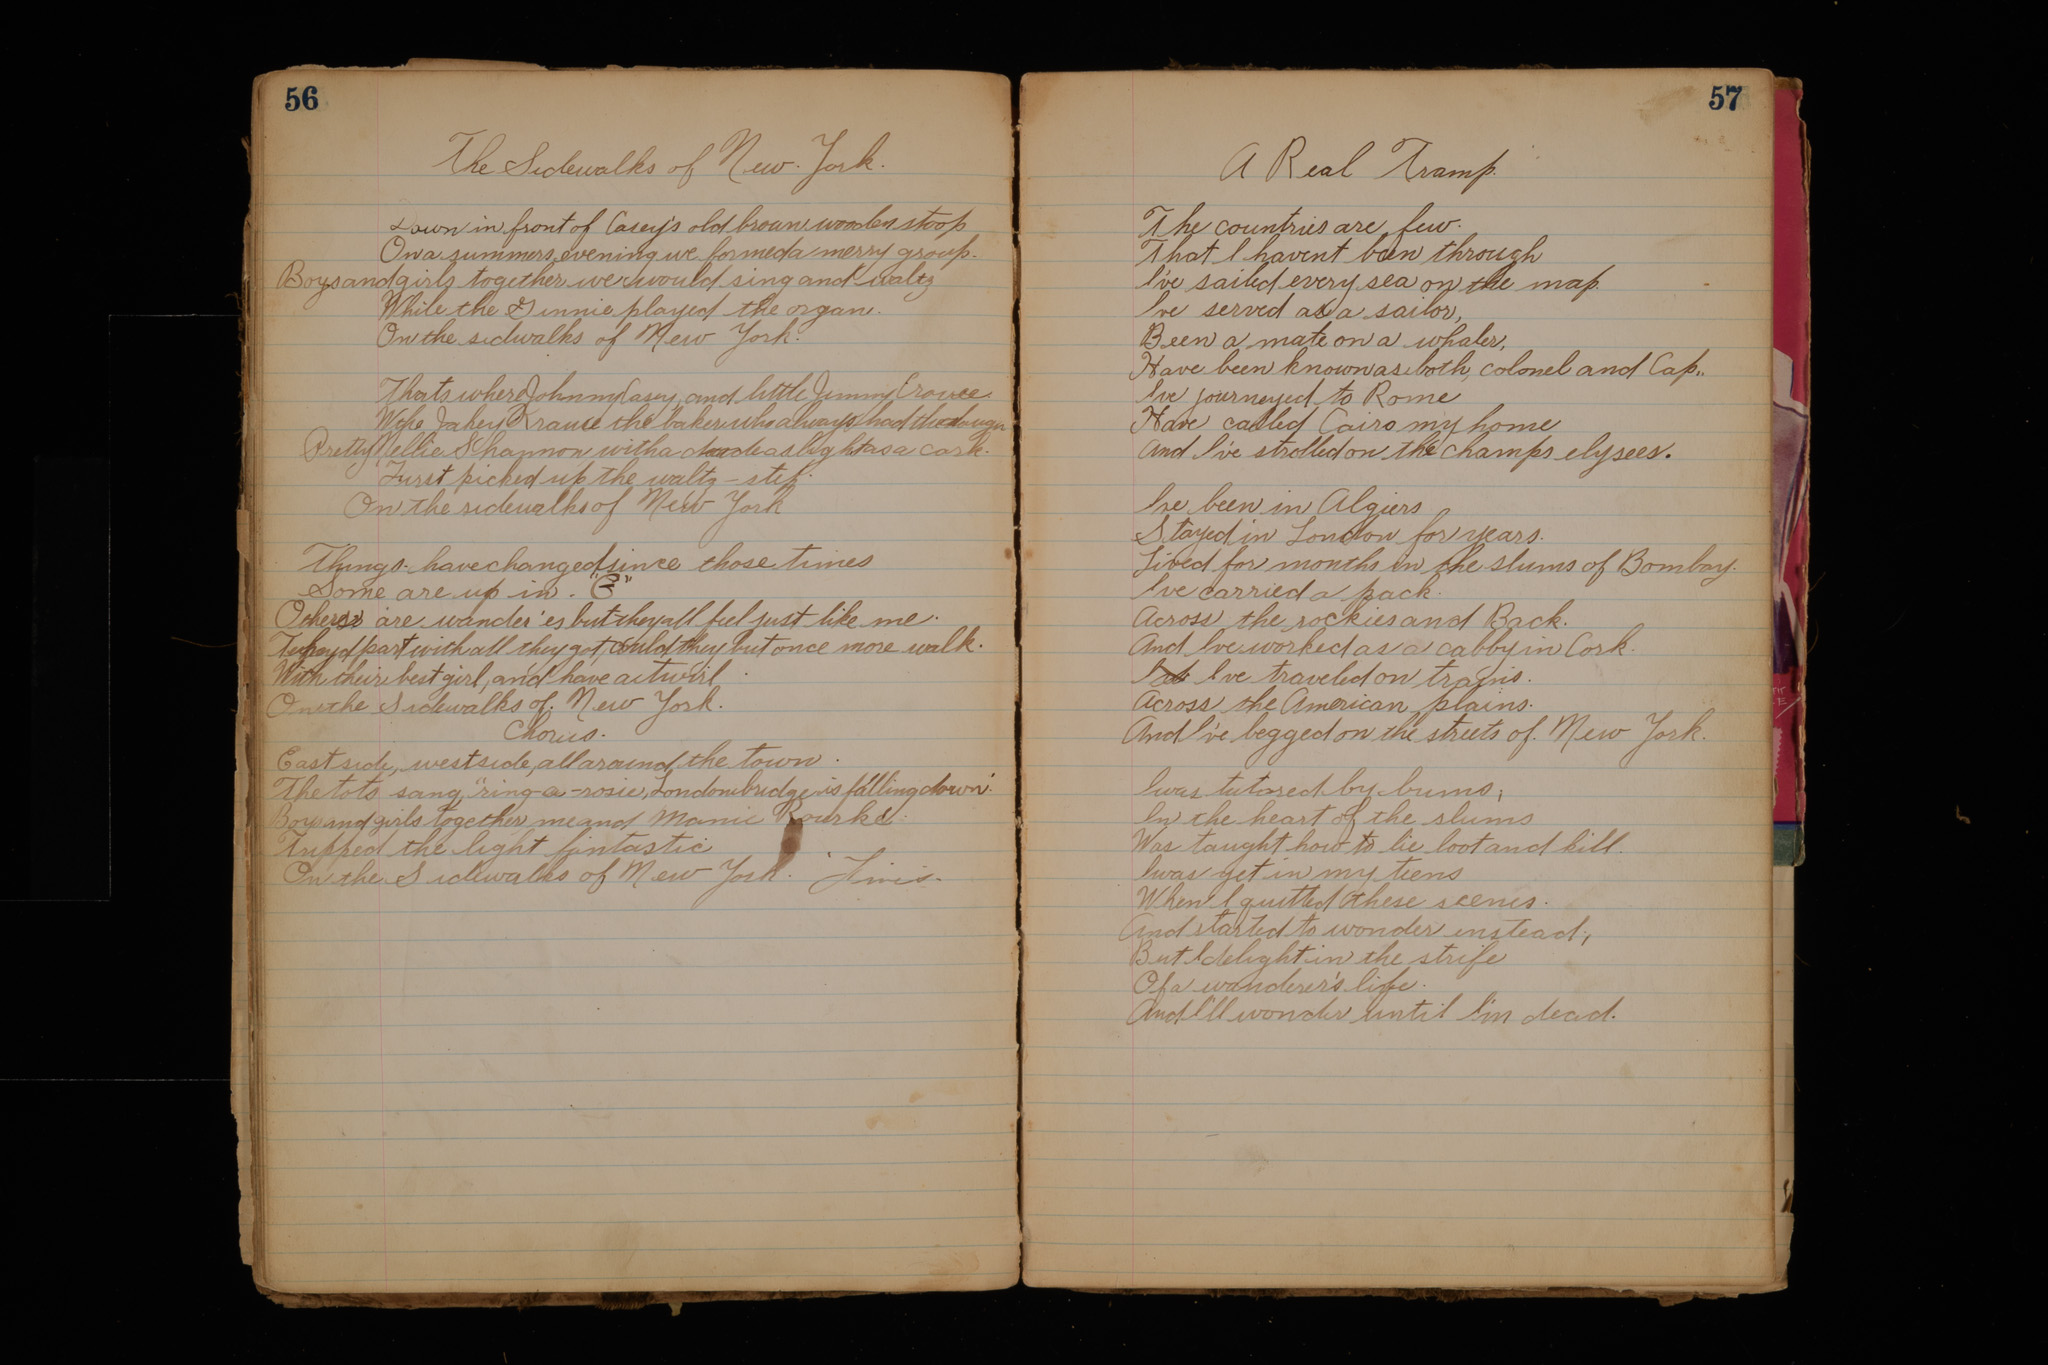 56
The Sidewalks of New York.
Down in front of Casey's old brown wooden stoop
On a summers evening we formed a merry group.
Boys and girls together we would sing and waltz
While the Ginnie played the organ.
On the sidwalks of New York.
Thats where Johnny Casey, and little Jimmy Crowe.
With Jakey Krause the baker who always had the dough
Pretty Nellie Shannon with a dude as light as a cork.
Furst picked up the waltz - step.
On the sidewalks of New York
Things have changed since those times
Some are up in. "G"
Others are wander'es but they all feel just like me.
They'd part with all they got, could they but once more walk.
With their best girl, and have a twirl
On the Sidewalks of. New York.
Chorus.
East side, west side, all around the town.
The tots sang, "ring-a-rosie, London bridge is falling down".
Boys and girls together me and Mamie Rourke.
Tripped the light fantastic
On the Sidewalks of New York. Finis.
57
A Real Tramp.
The countries are few.
That I havent been through
I've sailed every sea on the map.
I've served as a sailor,
Been a mate on a whaler,
Have been known as both, colonel and Cap..
I've journeyed to Rome
Have called Cairo my home
And I've strolled on the champs elysees.
I've been in Algiers
Stayed in London for years.
Lived for months in the slums of Bombay.
I've carried a pack.
Across the rockies and Back.
And I've worked as a cabby in Cork.
I've traveled on trains.
Across the American plains.
And I've begged on the streets of. New York.
I was tutored by bums,
In the heart of the slums
Was taught how to lie loot and kill.
I was yet in my teens
When I quitted these scenes.
And started to wonder instead,
But I delight in the strife
Of a wanderer's life.
And I'll wonder until I'm dead.